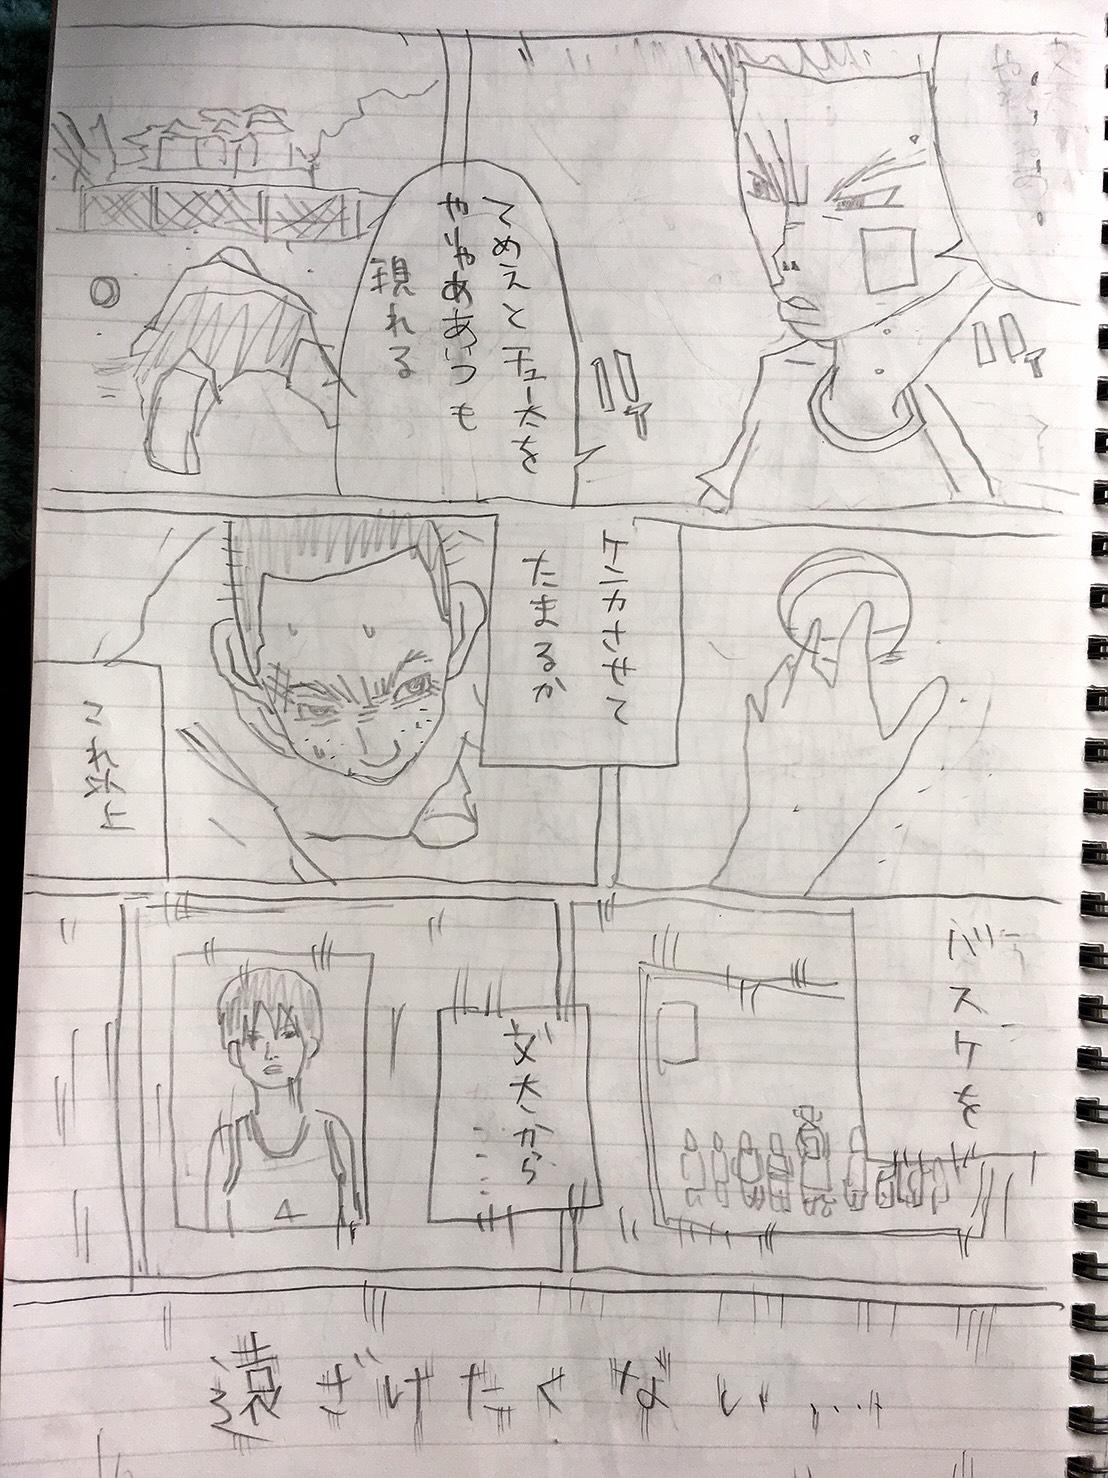 てめえとチュー太を
やりゃああいつも
現れる
ケンカさせて
たまるか
これ以上
バスケを
文太から
……
遠ざけたくない……
4